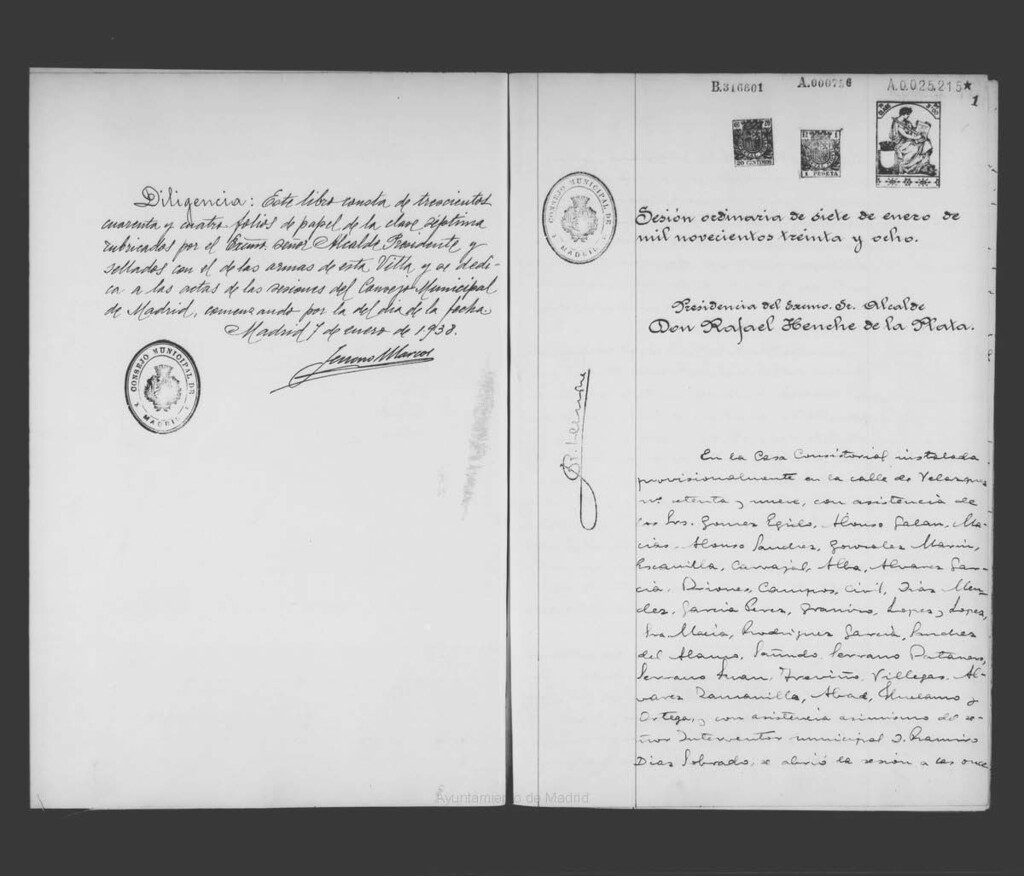 Diligencia: Este libro consta de trescientos
cuarenta y cuatro folios de papel de la clase séptima
rubricados por el Excmo señor Alcalde Presidente y
sellados con el de las armas de esta Villa y se dedi-
ca a las actas de las sesiones del Consejo Municipal
de Madrid, comenzando por la del dia de la fecha.
Madrid 7 de enero de 1938.
CONSEJO MUNICIPAL DE
MADRID
B.316801
A.000756
A.0.025.215★
1
50 CENTIMOS
1 PESETA
CONSEJO MUNICIPAL DE
MADRID
Sesión ordinaria de siete de enero de
mil novecientos treinta y ocho.
Presidencia del Excmo. Sr. Alcalde
Don Rafael Henche de la Plata.
En la Casa Consistorial instalada
provisionalmente en la calle de Velazquez
y nueve, con asistencia de
los Srs. Gomez Egido, Alonso Galan, Ma-
cias, Alonso Sanchez, Gonzalez Marin,
Escanilla, Carvajal, Alba, Alvarez Gar-
cia, Briones, Campos, Civil, Diaz Men-
dez, Garcia Perez, Lopez y Lopez,
Sra Macia, Rodriguez Garcia, Sanchez
del Alamo, Sañudo, Serrano Batanero,
Serrano Juan, Treviño, Villegas, Al-
varez Zamanillo, Abad, Huelamo y
Ortega, y con asistencia asimismo del se-
ñor Interventor municipal D. Ramiro
Diaz Sobrado, se abrió la sesión a las once
Ayuntamiento de Madrid